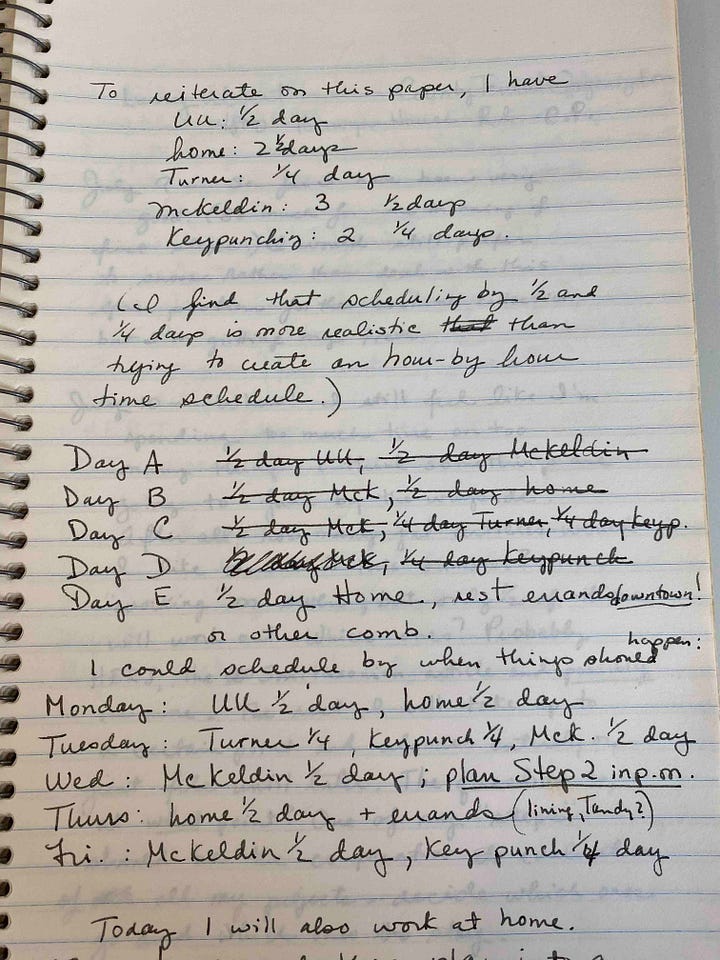 To reiterate on this paper, I have
UU: 1/2 day
home: 2 1/2 days
Turner: 1/4 day
McKeldin: 3 1/2 days
Keypunching: 2 1/4 days.
(I find that scheduling by 1/2 and
1/4 days is more realistic that than
trying to create an hour-by hour
time schedule.)
Day A 1/2 day UU, 1/2 day McKeldin
Day B 1/2 day McK, 1/2 day home
Day C 1/2 day McK, 1/4 day Turner, 1/4 day Keyp.
Day D 1/2 day McK, 1/4 day Keypunch
Day E 1/2 day Home, rest errands downtown!
or other comb.
I could schedule by when things should happen:
Monday: UU 1/2 day, home 1/2 day
Tuesday: Turner 1/4, Keypunch 1/4, McK. 1/2 day
Wed: McKeldin 1/2 day; plan Step 2 inp.on.
Thurs: home 1/2 day + errands (lining, Tandy?)
Fri.: McKeldin 1/2 day, Key punch 1/4 day
Today I will also work at home.